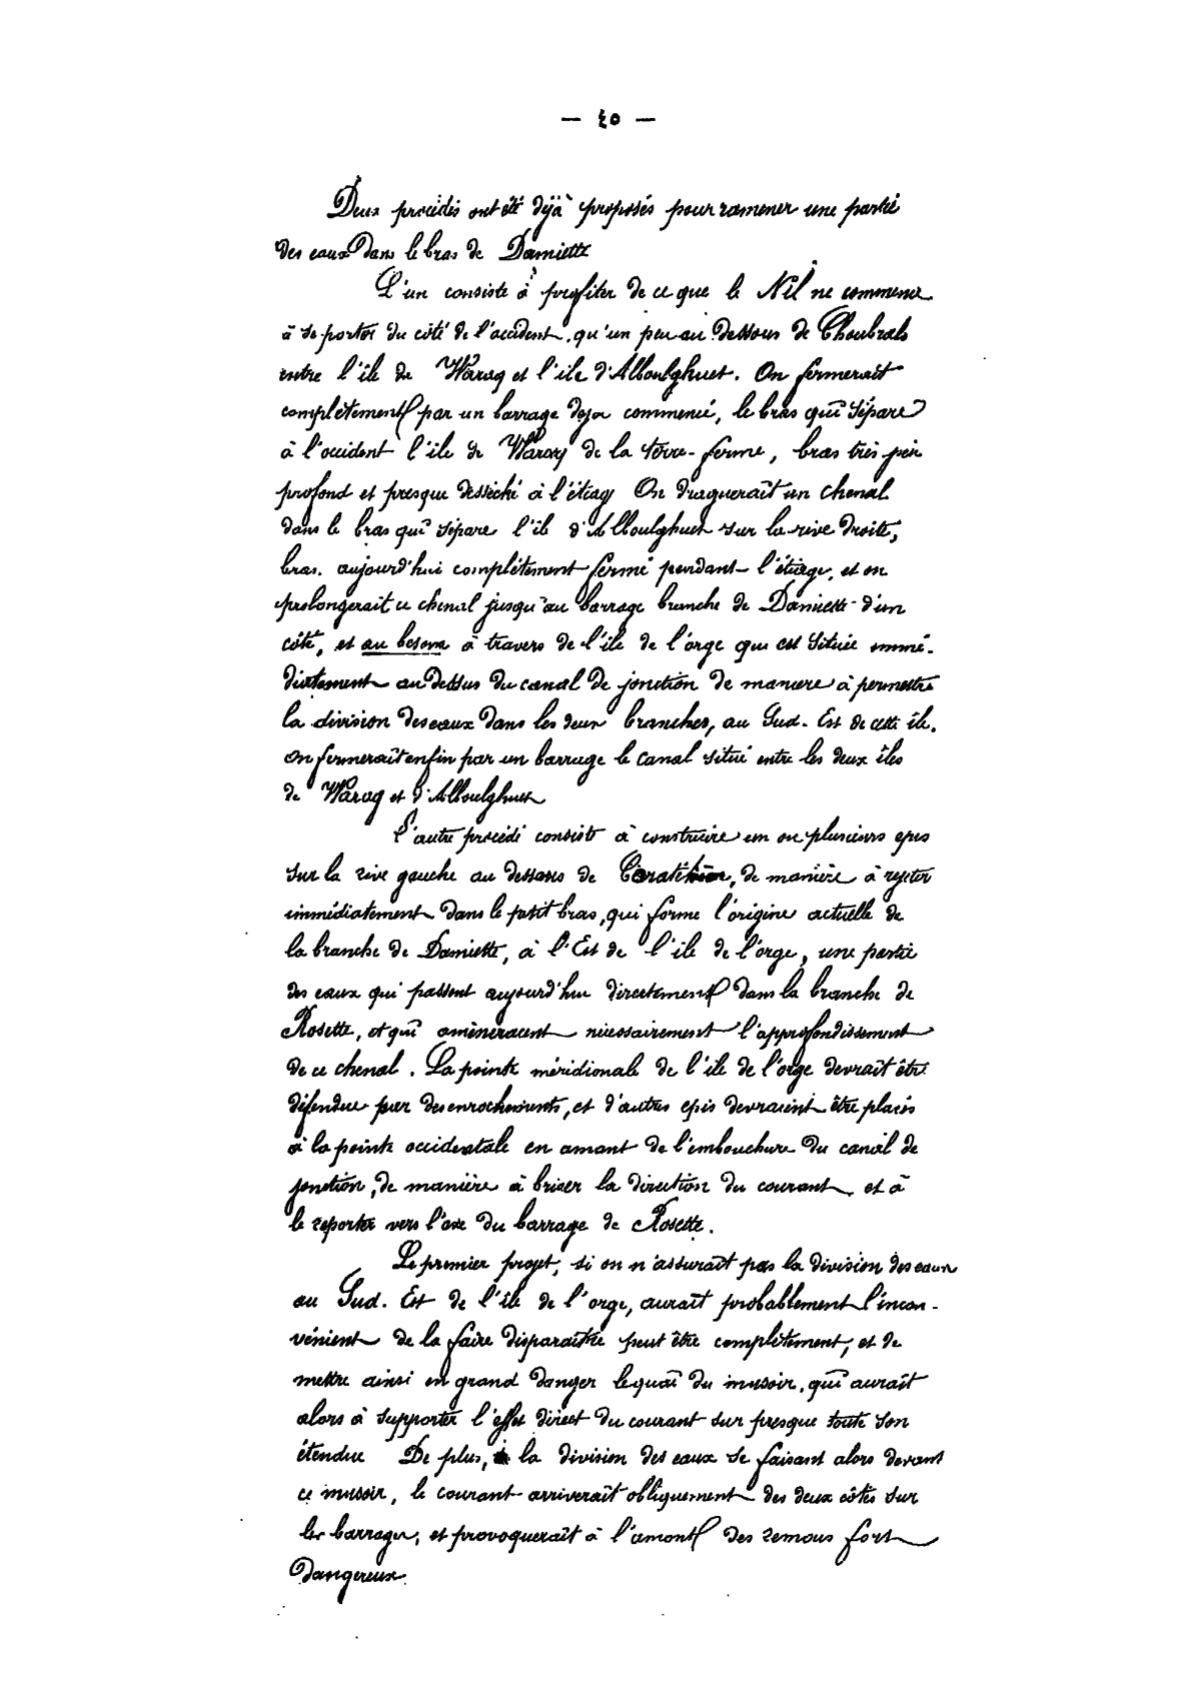 — ٤٥ —
Deux procédés ont été déjà proposés pour ramener une partie
des eaux dans le bras de Damiette
L'un consiste à profiter de ce que le Nil ne commence
à se porter du côté de l'occident, qu'un peu au dessous de Choubrah
entre l'île de Waraq et l'ile d'Alboulghuet. On fermerait
complètement par un barrage deja commencé, le bras qui sépare
à l'occident l'ile de Waraq de la terre-ferme, bras très peu
profond et presque desséché à l'étiage On draguerait un chenal
dans le bras qui sépare l'île d'Alboulghuet sur la rive droite,
bras. aujourd'hui complétement fermé pendant l'étiage, et on
prolongerait ce chenal jusqu'au barrage branche de Damiette d'un
côté, et au besoin à travers de l'île de l'orge qui est située immé-
diatement au dessus du canal de jonction de maniere à permettre
la division des eaux dans les deux branches, au Sud. Est de cette île.
on fermerait enfin par un barrage le canal situé entre les deux îles
de Waraq et d'Alboulghuet
L'autre procédé consiste à construire un ou plusieurs epis
sur la rive gauche au dessous de, de manière à rejeter
immédiatement dans le petit bras, qui forme l'origine actuelle de
la branche de Damiette, à l'Est de l'ile de l'orge, une partie
des eaux qui passent aujourd'hui directement dans la branche de
Rosette, et qui amèneraient nécessairement l'approfondissement
de ce chenal. La pointe méridionale de l'île de l'orge devrait être
défendue par des enrochements, et d'autres epis devraient être placés
à la pointe occidentale en amont de l'embouchure du canal de
jonction, de manière à briser la direction du courant et à
le reporter vers l'axe du barrage de Rosette.
Le premier projet, si on n'assurait pas la division des eaux
au Sud. Est de l'île de l'orge, aurait probablement l'incon-
vénient de la faire disparaître peut être complètement, et de
mettre ainsi en grand danger le quai du musoir, qui aurait
alors à supporter l'effet direct du courant sur presque toute son
étendue De plus, la division des eaux se faisant alors devant
ce musoir, le courant arriverait obliquement des deux côtés sur
les barrages, et provoquerait à l'amont des remous fort
dangereux.